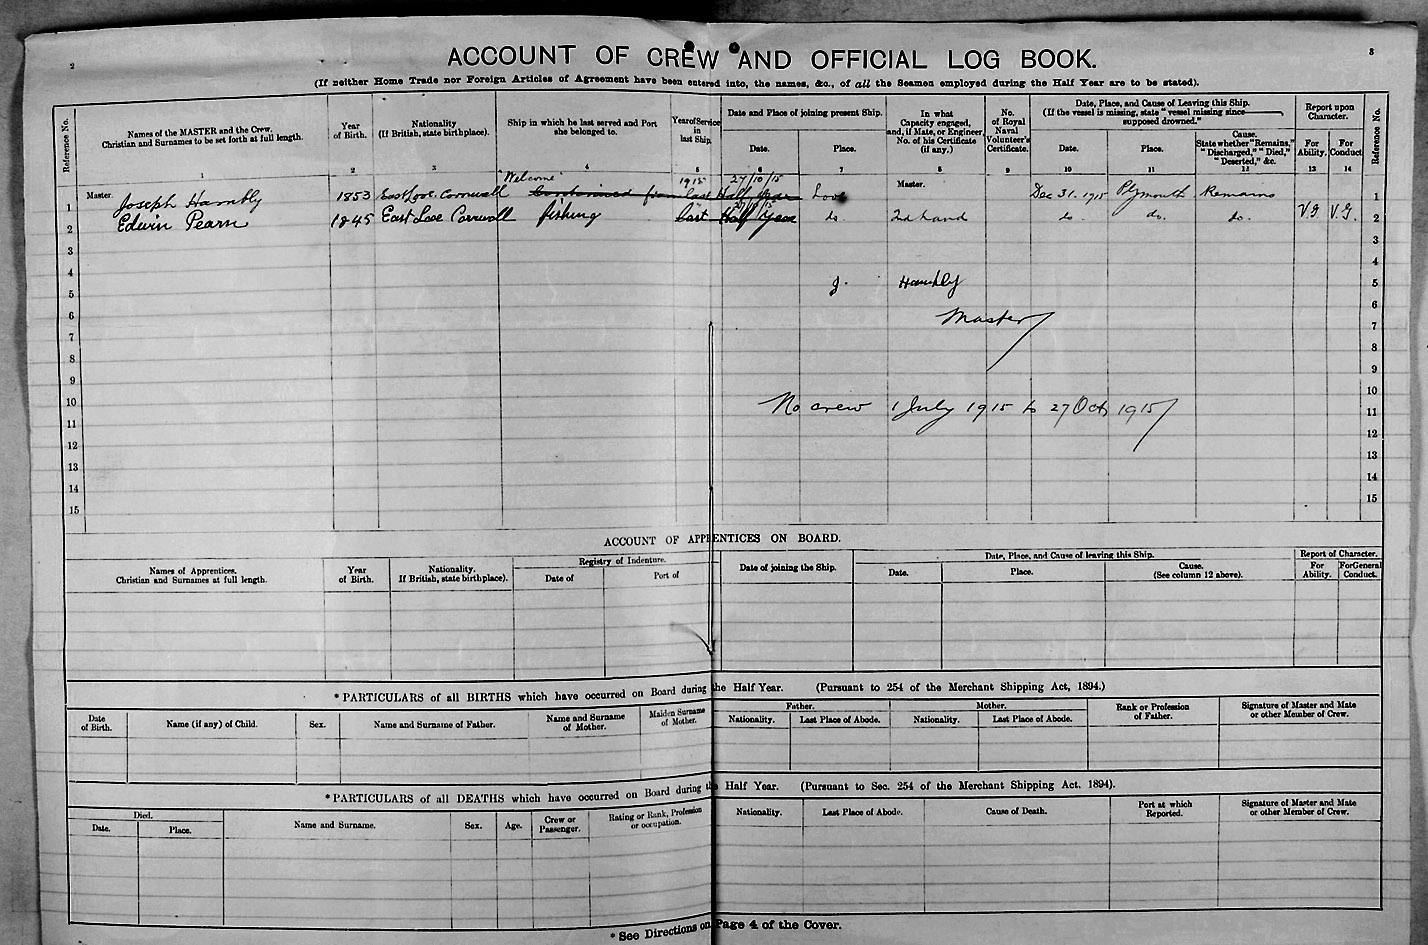 2
3
ACCOUNT OF CREW AND OFFICIAL LOG BOOK.
(If neither Home Trade nor Foreign Articles of Agreement have been entered into, the names, &c., of all the Seamen employed during the Half Year are to be stated).
Reference No.
Names of the MASTER and the Crew.
Christian and Surnames to be set forth at full length.
Year
of Birth.
Nationality
(If British, state birthplace).
Ship in which he last served and Port
she belonged to.
Year of Service
in
last Ship.
Date and Place of joining present Ship.
Date.
Place.
In what
Capacity engaged,
and, if Mate, or Engineer,
No. of his Certificate
(if any.)
No.
of Royal
Naval
Volunteer's
Certificate.
Date, Place, and Cause of Leaving this Ship.
(If the vessel is missing, state "vessel missing since
supposed drowned."
Date.
Place.
Cause.
State whether "Remains,"
"Discharged," "Died,"
"Deserted," &c.
Report upon
Character.
For
Ability.
For
Conduct
Reference No.
1 2 3 4 5 6 7 8 9 10 11 12 13 14
"Welcome" 1915 27/10/15
1 Master. Joseph Hambly 1853 East Looe. Cornwall Continued from last Half Year Looe Master. Dec 31. 1915 Plymouth Remains 1
27/10/15
2 Edwin Pearn 1845 East Looe Cornwall fishing last Half Year do 2nd hand do. do. do. V.G V.G. 2
3 3
4 4
5 J. Hambly 5
6 Master 6
7 7
8 8
9 9
10 10
11 No crew 1 July 1915 to 27 Oct 1915 11
12 12
13 13
14 14
15 15
ACCOUNT OF APPRENTICES ON BOARD.
Names of Apprentices.
Christian and Surnames at full length.
Year
of Birth.
Nationality.
If British, state birthplace).
Registry of Indenture.
Date of
Port of
Date of joining the Ship.
Date, Place, and Cause of leaving this Ship.
Date.
Place.
Cause.
(See column 12 above).
Report of Character.
For
Ability.
For General
Conduct.
*PARTICULARS of all BIRTHS which have occurred on Board during the Half Year. (Pursuant to 254 of the Merchant Shipping Act, 1894.)
Date
of Birth.
Name (if any) of Child.
Sex.
Name and Surname of Father.
Name and Surname
of Mother.
Maiden Surname
of Mother.
Father.
Nationality.
Last Place of Abode.
Mother.
Nationality.
Last Place of Abode.
Rank or Profession
of Father.
Signature of Master and Mate
or other Member of Crew.
*PARTICULARS of all DEATHS which have occurred on Board during the Half Year. (Pursuant to Sec. 254 of the Merchant Shipping Act, 1894).
Died.
Date.
Place.
Name and Surname.
Sex.
Age.
Crew or
Passenger.
Rating or Rank, Profession
or occupation.
Nationality.
Last Place of Abode.
Cause of Death.
Port at which
Reported.
Signature of Master and Mate
or other Member of Crew.
*See Directions on Page 4 of the Cover.